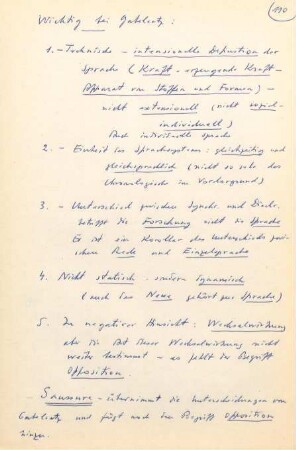 190
Wichtig bei Gabelentz:
1. – Technische – intensionelle Definition der
Sprache (Kraft – erzeugende Kraft –
Apparat von Stoffen und Formen) –
nicht extensionell (nicht sozial-
individuell)
Auch individuelle Sprache
2. – Einheit des Sprachsystems: gleichzeitig und
gleichsprachlich (nicht so sehr das
Chronologische im Vordergrund)
3. – Unterschied zwischen Synchr. und Diachr.
betrifft die Forschung nicht die Sprache
Er ist ein Korollar des Unterschieds zwi-
schen Rede und Einzelsprache
4. Nicht statisch – sondern dynamisch
(auch das Neue gehört zur Sprache)
5. In negativer Hinsicht: Wechselwirkung
aber die Art dieser Wechselwirkung nicht
weiter bestimmt – es fehlt der Begriff
Opposition.
– Saussure – übernimmt die Unterscheidungen von
Gabelentz und fügt noch den Begriff Opposition
hinzu.